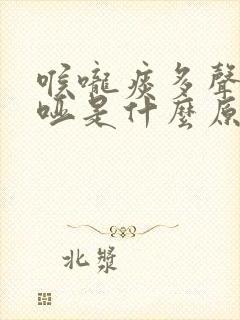 喉嚨痰多聲
啞是什麼原
北漿